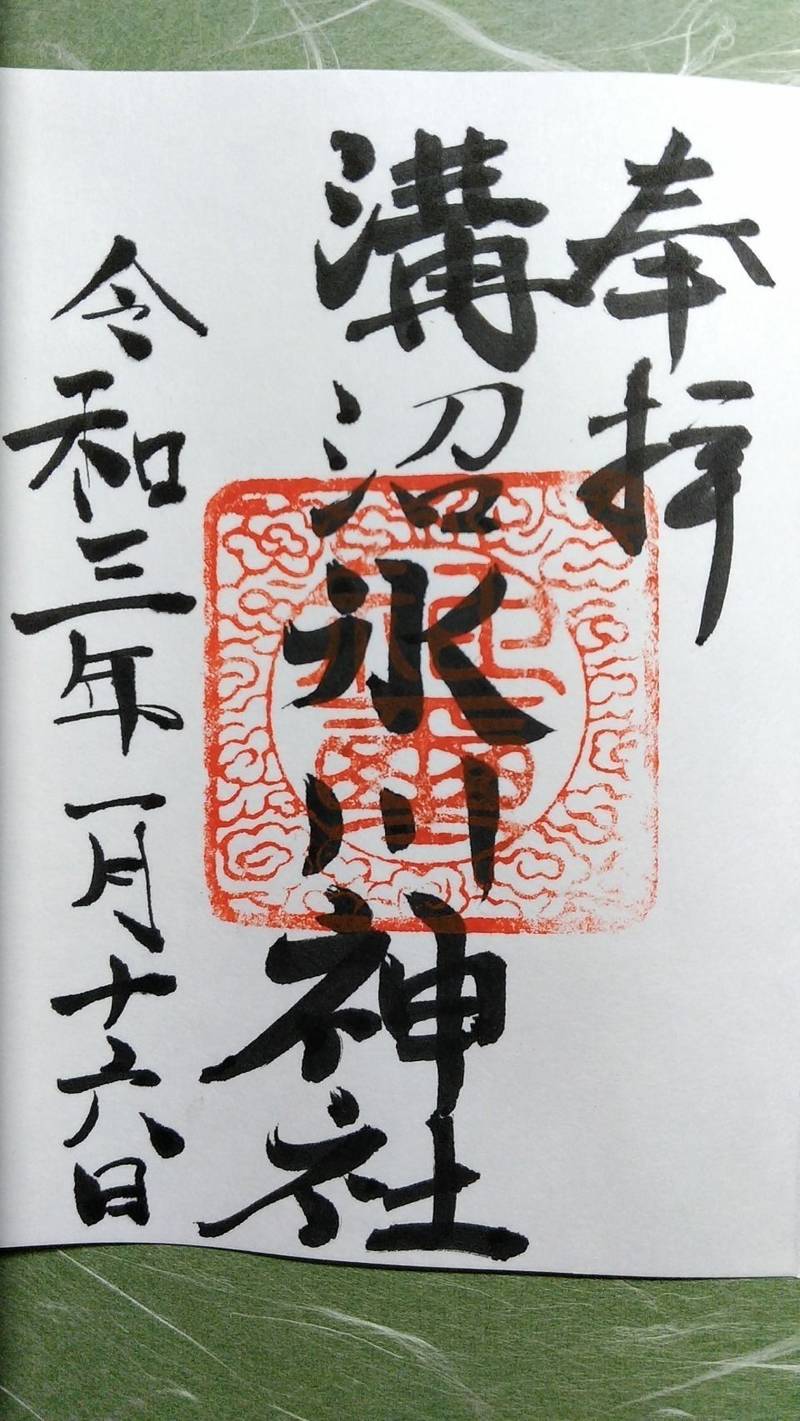 奉拝
溝沼氷川神社
令和三年一月十六日